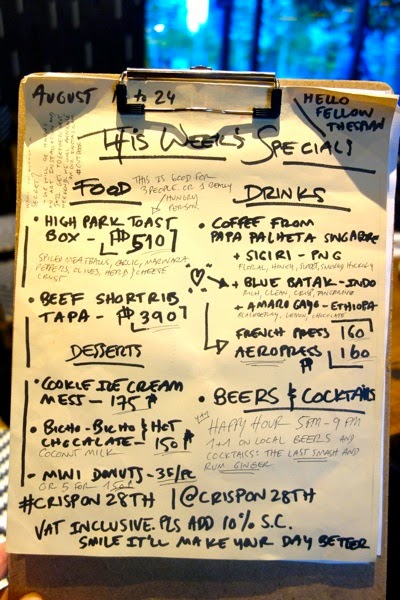 AUGUST to 24
HELLO
FELLOW
THESPIAN
THIS WEEK'S SPECIALS
FOOD
THIS IS GOOD FOR
3 PEOPLE. OR 1 REALLY
HUNGRY
PERSON
• HIGH PARK TOAST
BOX - ₱510
SPICED MEATBALLS, GARLIC, MARINARA
PEPPERS, OLIVES, HERB / CHEESE
CRUST
• BEEF SHORTRIB
TAPA - ₱390
DESSERTS
• COOKIE ICE CREAM
MESS - 175 ₱
• BICHO-BICHO & HOT
CHOCALATE - 150 ₱
COCONUT MILK
• MINI DONUTS - 35/PC
OR 5 FOR 150
DRINKS
• COFFEE FROM
PAPA PALHETA SINGAPORE
+ SIGIRI - PNG
FLORAL, HONEY, SWEET, SMOKEY HICKORY
+ BLUE BATAK - INDO
RICH, CLEAN, CRISP, TANGERINE
+ AMARO GAYO - ETHIOPA
BLACKBERRY, LEMON, CHOCOLATE
FRENCH PRESS 160
AEROPRESS 160
₱
• BEERS & COCKTAILS
HAPPY HOUR 5PM - 9PM
1+1 ON LOCAL BEERS AND
COCKTAILS: THE LAST SMASH AND
RUM GINGER
#CRISPON28TH | @CRISPON28TH
VAT INCLUSIVE. PLS ADD 10% S.C.
SMILE IT'LL MAKE YOUR DAY BETTER